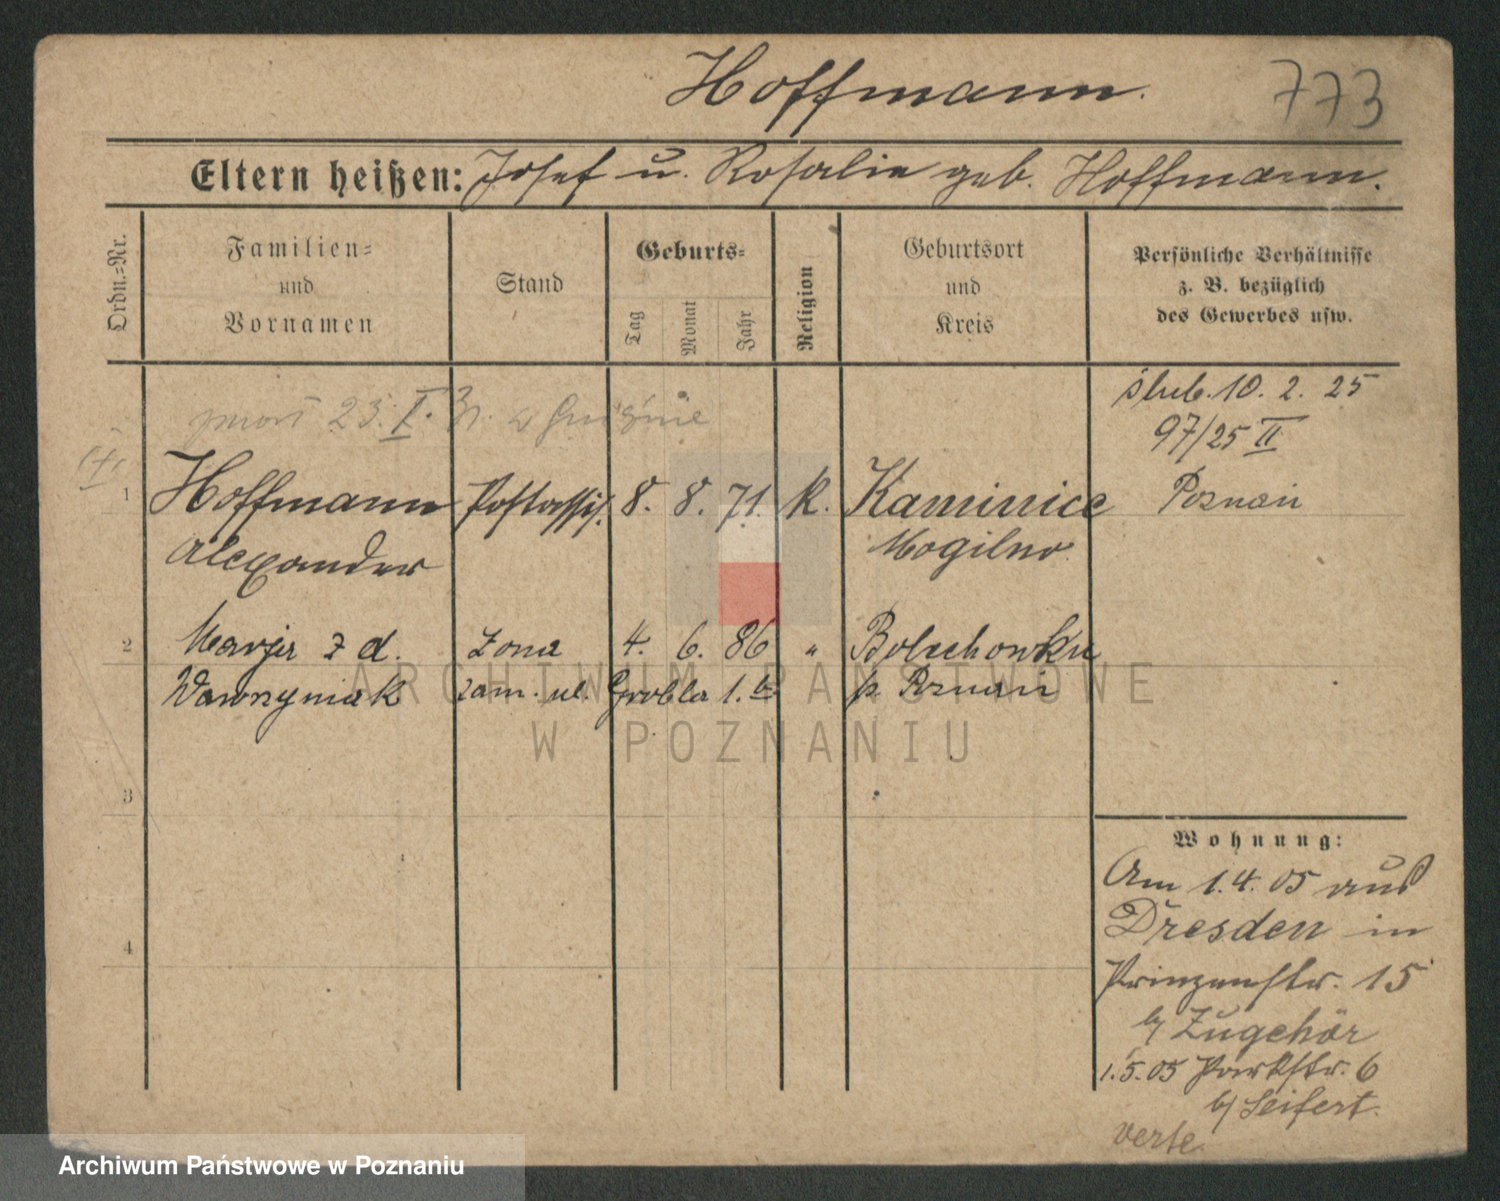 Hoffmann.
773
Eltern heißen: Josef u. Rosalie geb. Hoffmann.
Ordn.=Nr.
Familien=
und
Vornamen
Stand
Geburts=
Tag
Monat
Jahr
Religion
Geburtsort
und
Kreis
Persönliche Verhältnisse
z. B. bezüglich
des Gewerbes usw.
23. I.
ślub. 10. 2. 25
97/25 II
Poznań
1 Hoffmann Postassis. 8. 8. 71. k. Kaminice
Alexander Mogilno
2 Marja z d. żona 4. 6. 86 " Bolechowku
Wawrzyniak zam. ul. Grobla 1. p. Poznań
3
4
Wohnung:
Am 1.4.05 aus
Dresden in
Prinzenstr. 15
b/ Zugehör
1.5.05 Parkstr. 6
b/ Seifert.
verte
ARCHIWUM PAŃSTWOWE
W POZNANIU
Archiwum Państwowe w Poznaniu